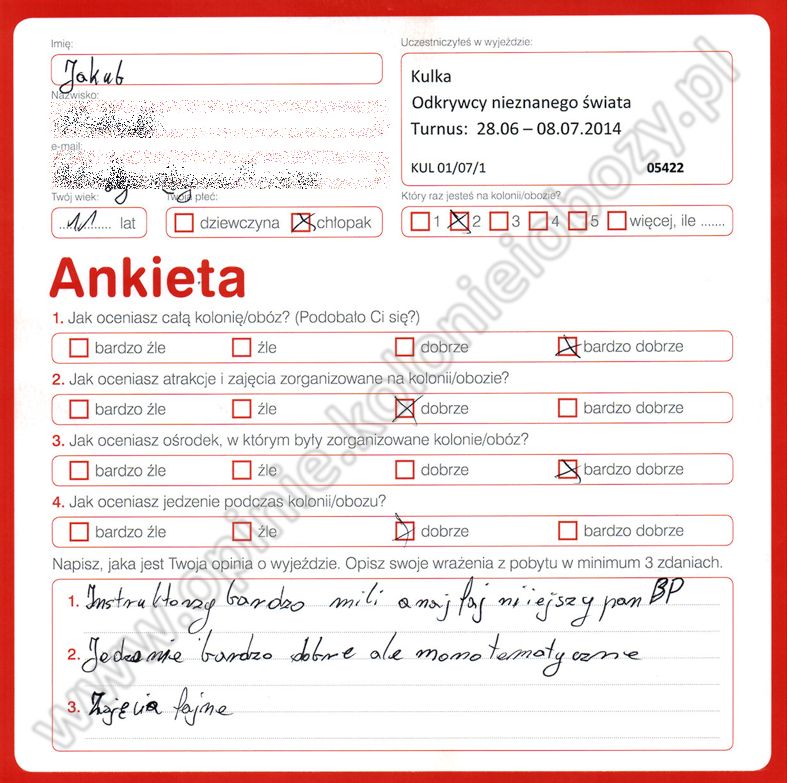 Imię:
Jakub
Nazwisko:
e-mail:
Twój wiek:
Twoja płeć:
11 lat
dziewczyna
chłopak
Uczestniczyłeś w wyjeździe:
Kulka
Odkrywcy nieznanego świata
Turnus: 28.06 – 08.07.2014
KUL 01/07/1
05422
Który raz jesteś na kolonii/obozie?
1 2 3 4 5 więcej, ile .......
Ankieta
1. Jak oceniasz całą kolonię/obóz? (Podobało Ci się?)
bardzo źle źle dobrze bardzo dobrze
2. Jak oceniasz atrakcje i zajęcia zorganizowane na kolonii/obozie?
bardzo źle źle dobrze bardzo dobrze
3. Jak oceniasz ośrodek, w którym były zorganizowane kolonie/obóz?
bardzo źle źle dobrze bardzo dobrze
4. Jak oceniasz jedzenie podczas kolonii/obozu?
bardzo źle źle dobrze bardzo dobrze
Napisz, jaka jest Twoja opinia o wyjeździe. Opisz swoje wrażenia z pobytu w minimum 3 zdaniach.
1. Instruktorzy bardzo mili a naj faj niiejszy pan BP
2. Jedzenie bardzo dobre ale monotematyczne
3. Zajęcia fajne
www.opinie.kolonieiobozy.pl